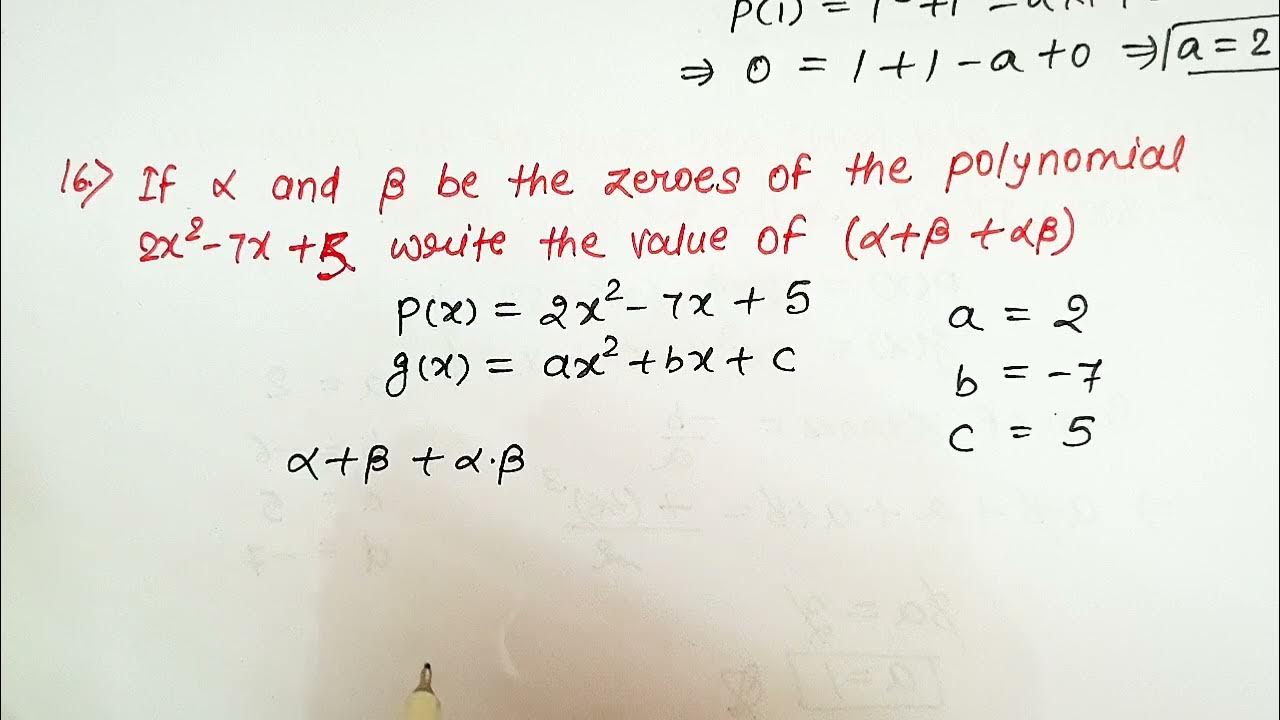 P(1) = 1
⇒ 0 = 1 + 1 - a + 0 ⇒ a = 2
16.) If α and β be the zeroes of the polynomial
2x² - 7x + 5 write the value of (α+β + αβ)
P(x) = 2x² - 7x + 5
a = 2
g(x) = ax² + bx + c
b = -7
c = 5
α + β + α·β